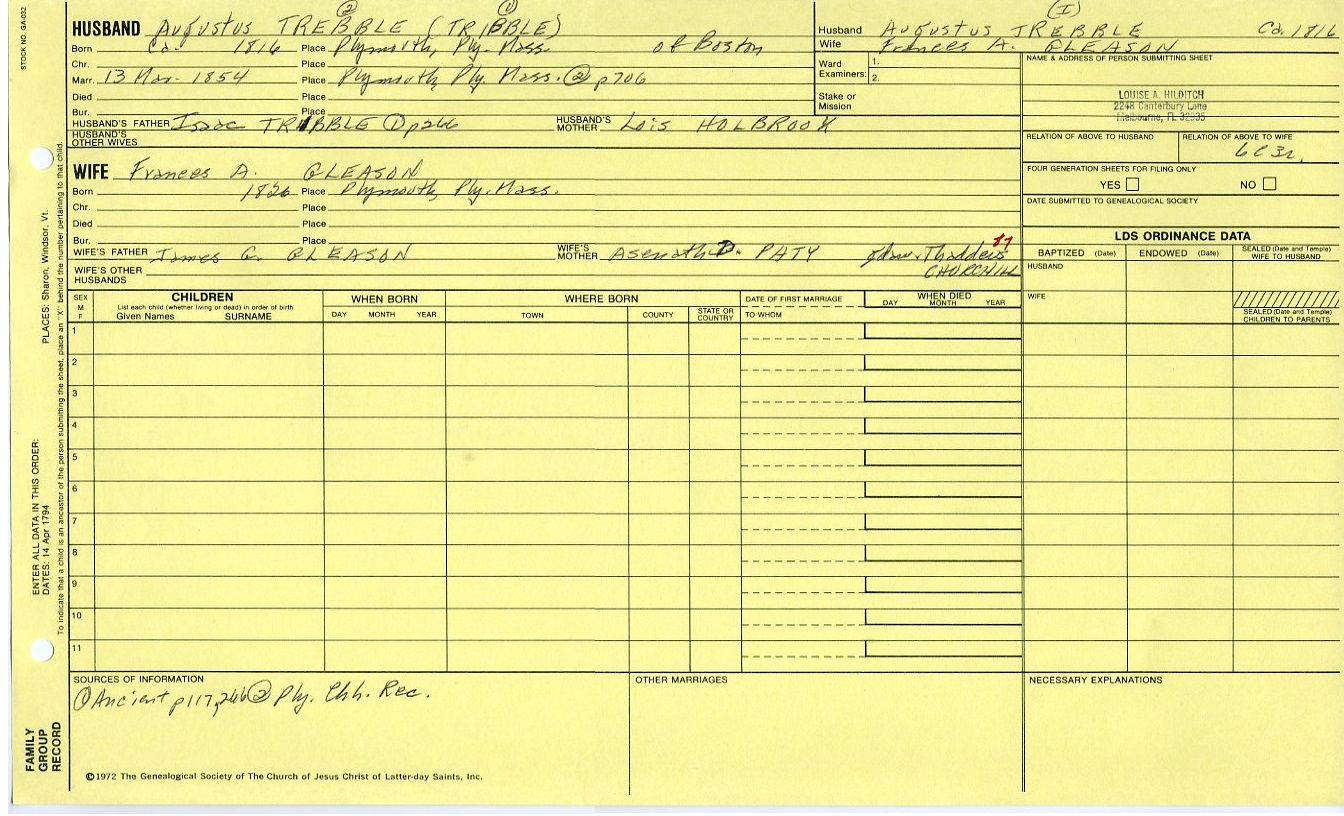 STOCK NO. GA-032
② ①
HUSBAND Augustus TREBBLE (TRIBBLE)
Born Ca. 1816 Place Plymouth, Ply. Mass. of Boston
Chr. Place
Marr. 13 Mar. 1854 Place Plymouth, Ply. Mass. ② p706
Died Place
Bur. Place
HUSBAND'S FATHER Isaac TRIBBLE ① p266 HUSBAND'S MOTHER Lois HOLBROOK
HUSBAND'S OTHER WIVES
WIFE Frances A. GLEASON
Born 1826 Place Plymouth, Ply. Mass.
Chr. Place
Died Place
Bur. Place
WIFE'S FATHER James G. GLEASON WIFE'S MOTHER Asenath D. PATY Thaddeus
CHURCHILL
WIFE'S OTHER HUSBANDS
(I)
Husband Augustus TREBBLE Ca. 1816
Wife Frances A. GLEASON
Ward Examiners: 1.
2.
Stake or Mission
NAME & ADDRESS OF PERSON SUBMITTING SHEET
LOUISE A. HILDITCH
2248 Canterbury Lane
Melbourne, FL 32935
RELATION OF ABOVE TO HUSBAND RELATION OF ABOVE TO WIFE
6C3r.
FOUR GENERATION SHEETS FOR FILING ONLY
YES NO
DATE SUBMITTED TO GENEALOGICAL SOCIETY
LDS ORDINANCE DATA
BAPTIZED (Date) ENDOWED (Date) SEALED (Date and Temple) WIFE TO HUSBAND
HUSBAND
WIFE
SEALED (Date and Temple) CHILDREN TO PARENTS
SEX M F
CHILDREN
List each child (whether living or dead) in order of birth
Given Names SURNAME
WHEN BORN
DAY MONTH YEAR
WHERE BORN
TOWN COUNTY STATE OR COUNTRY
DATE OF FIRST MARRIAGE
TO WHOM
WHEN DIED
DAY MONTH YEAR
1
2
3
4
5
6
7
8
9
10
11
SOURCES OF INFORMATION
① Ancient p117,266 ② Ply. Chh. Rec.
OTHER MARRIAGES
NECESSARY EXPLANATIONS
©1972 The Genealogical Society of The Church of Jesus Christ of Latter-day Saints, Inc.
FAMILY GROUP RECORD
ENTER ALL DATA IN THIS ORDER:
DATES: 14 Apr 1794
PLACES: Sharon, Windsor, Vt.
To indicate that a child is an ancestor of the person submitting the sheet, place an "X" behind the number pertaining to that child.